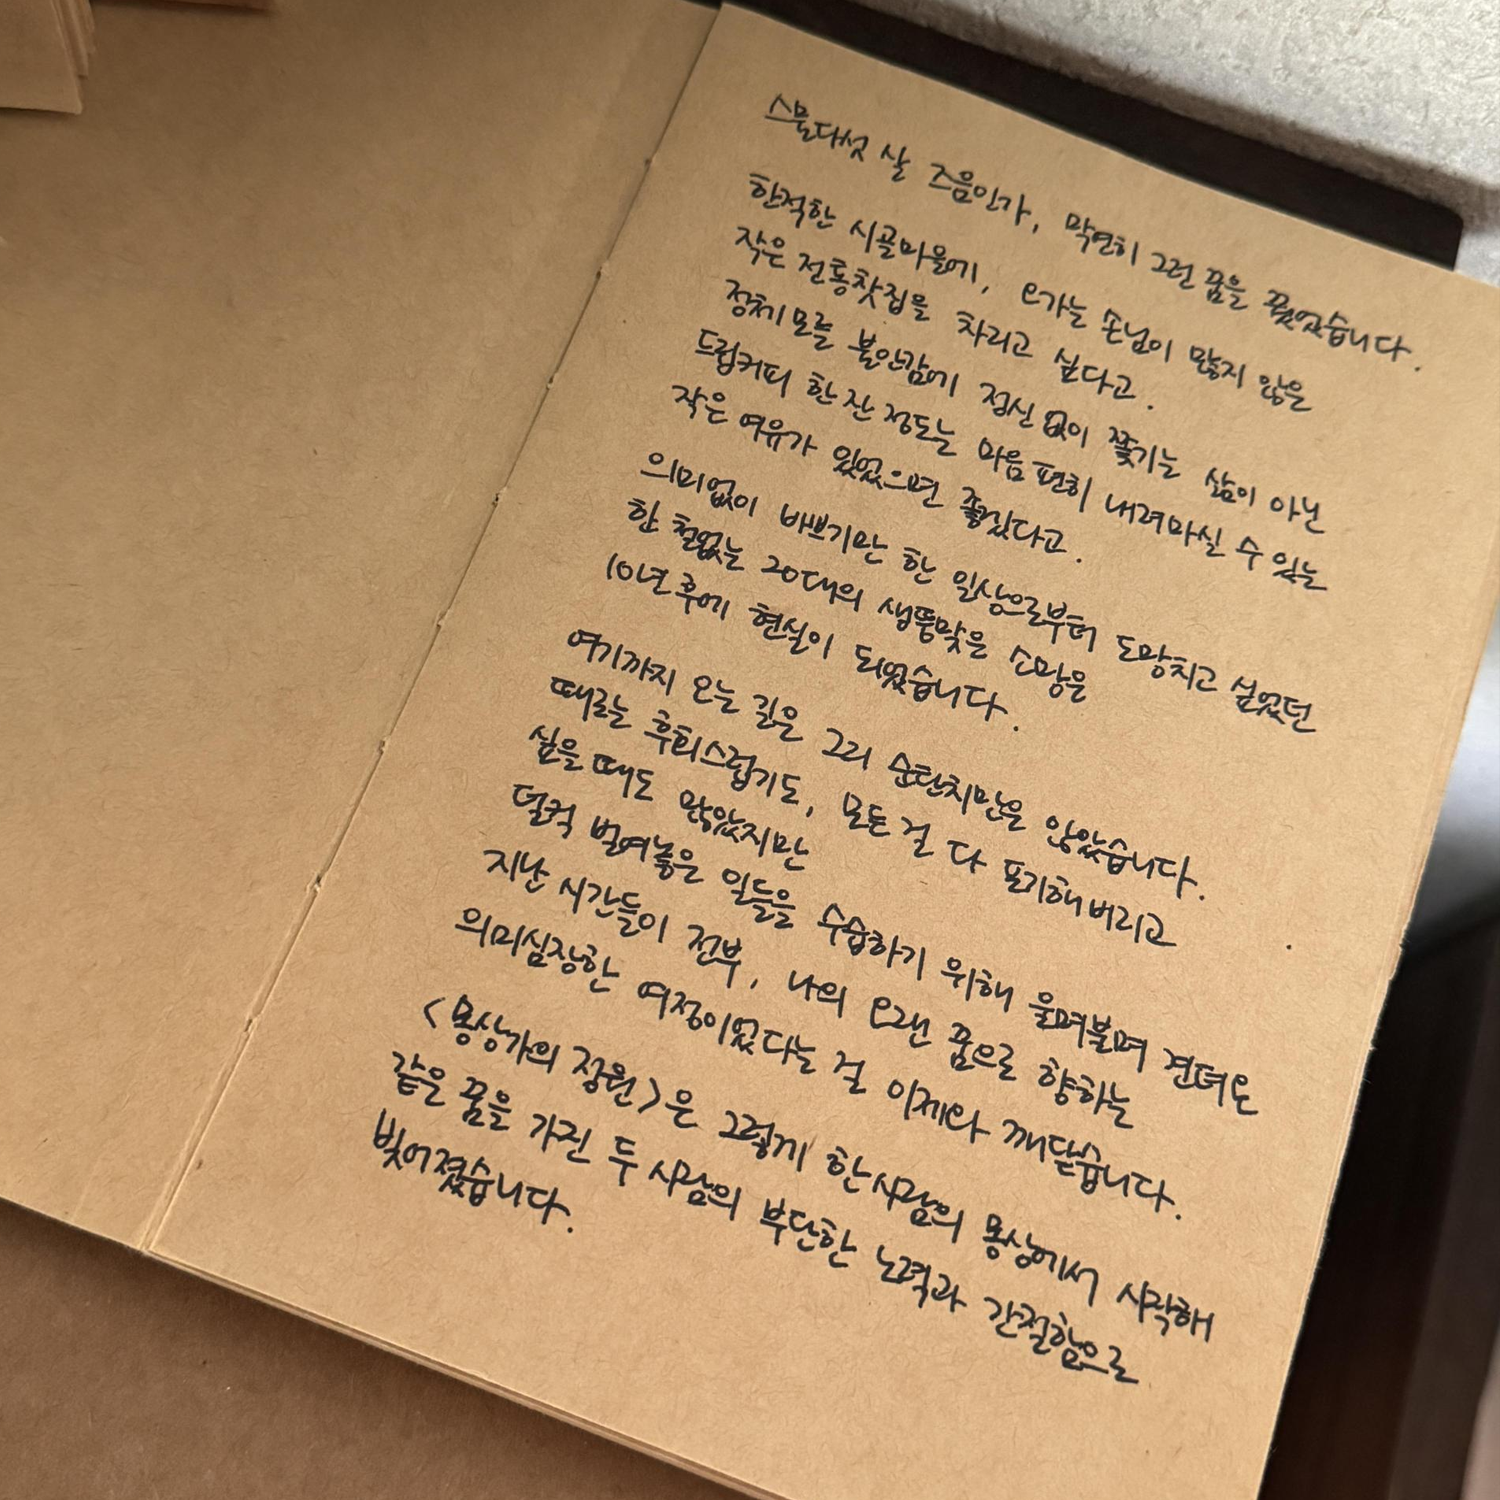 스물다섯 살 즈음인가, 막연히 그런 꿈을 꿨었습니다.
한적한 시골마을에, 오가는 손님이 많지 않은
작은 전통찻집을 차리고 싶다고.
정체 모를 불안감에 정신 없이 쫓기는 삶이 아닌
드립커피 한 잔 정도는 마음 편히 내려마실 수 있는
작은 여유가 있었으면 좋겠다고.
의미없이 바쁘기만 한 일상으로부터 도망치고 싶었던
한 철없는 20대의 생뚱맞은 소망은
10년 후에 현실이 되었습니다.
여기까지 오는 길은 그리 순탄치만은 않았습니다.
때로는 후회스럽기도, 모든 걸 다 포기해버리고
싶을 때도 많았지만
덜컥 벌여놓은 일들을 수습하기 위해 울며불며 견뎌온
지난 시간들이 전부, 나의 오랜 꿈으로 향하는
의미심장한 여정이었다는 걸 이제야 깨닫습니다.
<몽상가의 장원>은 그렇게 한 사람의 몽상에서 시작해
같은 꿈을 가진 두 사람의 부단한 노력과 간절함으로
빚어졌습니다.